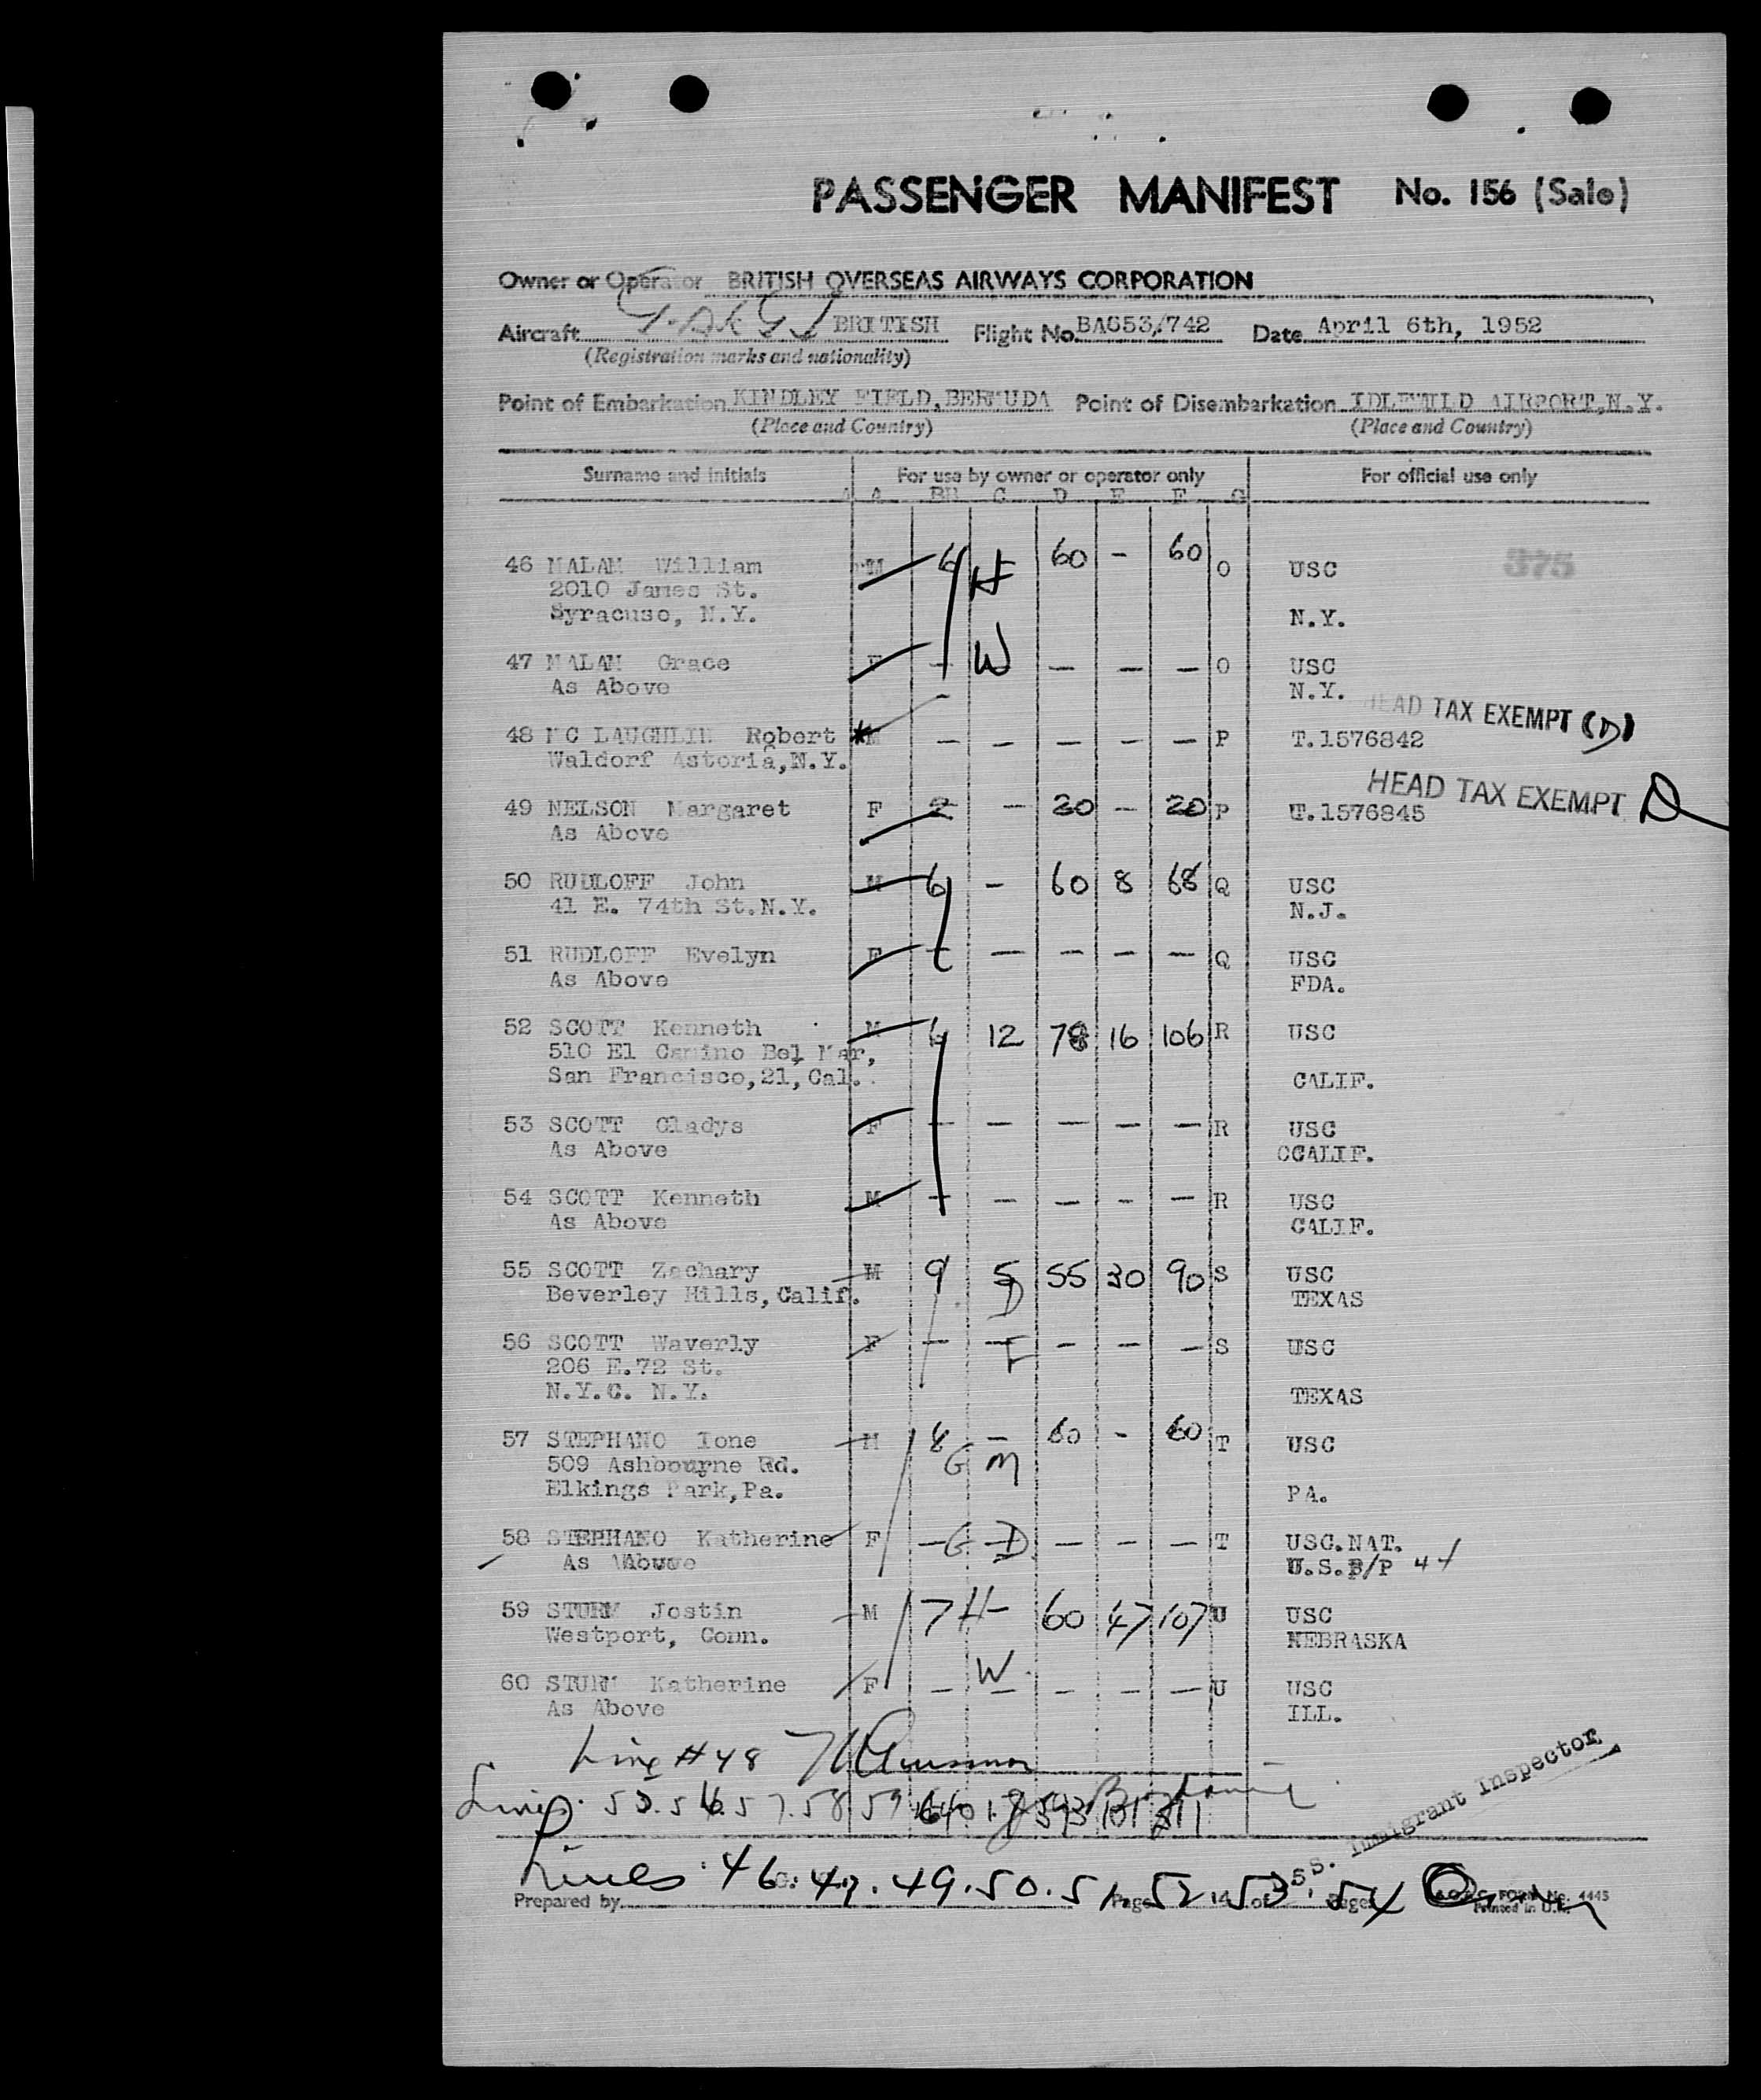 PASSENGER MANIFEST No. 156 (Sale)
Owner or Operator BRITISH OVERSEAS AIRWAYS CORPORATION
Aircraft BRITISH Flight No. BA653/742 Date April 6th, 1952
(Registration marks and nationality)
Point of Embarkation KINDLEY FIELD, BERMUDA Point of Disembarkation IDLEWILD AIRPORT, N.Y.
(Place and Country) (Place and Country)
Surname and initials For use by owner or operator only For official use only
A BR C D E F G
46 MALAM William M 6 H 60 - 60 O USC 375
2010 James St.
Syracuse, N.Y. N.Y.
47 MALAM Grace F - W - - - O USC
As Above N.Y.
HEAD TAX EXEMPT (D)
48 MC LAUGHLIN Robert M - - - - - P T.1576842
Waldorf Astoria, N.Y.
HEAD TAX EXEMPT D
49 NELSON Margaret F 2 - 20 - 20 P T.1576845
As Above
50 RUDLOFF John M 6 - 60 8 68 Q USC
41 E. 74th St.N.Y. N.J.
51 RUDLOFF Evelyn F - - - - - Q USC
As Above FDA.
52 SCOTT Kenneth M 6 12 78 16 106 R USC
510 El Camino Bel Mar,
San Francisco,21,Cal. CALIF.
53 SCOTT Gladys F - - - - - R USC
As Above CCALIF.
54 SCOTT Kenneth M - - - - - R USC
As Above CALIF.
55 SCOTT Zachary M 9 5 55 30 90 S USC
Beverley Hills, Calif. D TEXAS
56 SCOTT Waverly F - - - - - S USC
206 E.72 St.
N.Y.C. N.Y. TEXAS
57 STEPHANO Ione M 8 - 60 - 60 T USC
509 Ashbourne Rd. G M
Elkings Park, Pa. PA.
58 STEPHANO Katherine F - G - D - - - T USC.NAT.
As Above U.S.B/P
59 STURM Jostin M 7 H - 60 47 107 U USC
Westport, Conn. NEBRASKA
60 STURM Katherine F - W - - - - U USC
As Above ILL.
Line #48
Lines
Immigrant Inspector
Lines 46. 47. 49. 50. 51. 52. 53. 54
Prepared by Page 14 of Pages B.O.A.C. FORM No. 4445
Printed in U.K.